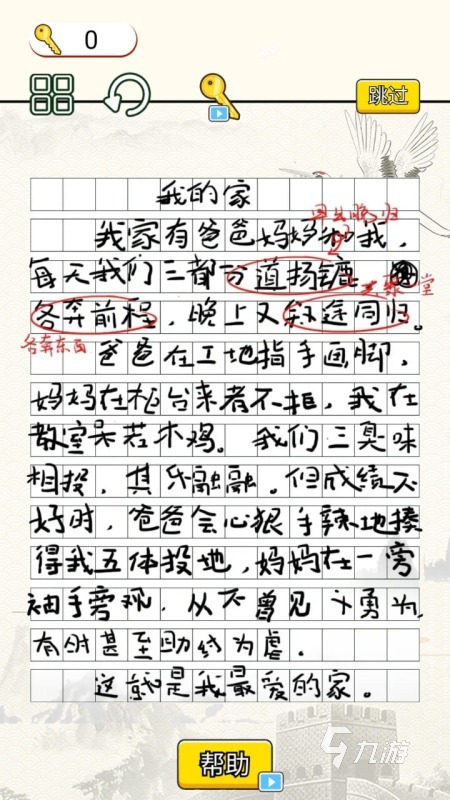 0
跳过
我的家
早出晚归
我家有爸爸妈妈和我，
每天我们三都分道扬镳，
欢聚一堂
各奔前程，晚上又殊途同归。
各奔东西
爸爸在工地指手画脚，
妈妈在柜台来者不拒，我在
教室呆若木鸡。我们三臭味
相投，其乐融融。但成绩不
好时，爸爸会心狠手辣地揍
得我五体投地，妈妈在一旁
袖手旁观，从不曾见义勇为，
有时甚至助纣为虐。
这就是我最爱的家。
九游
帮助